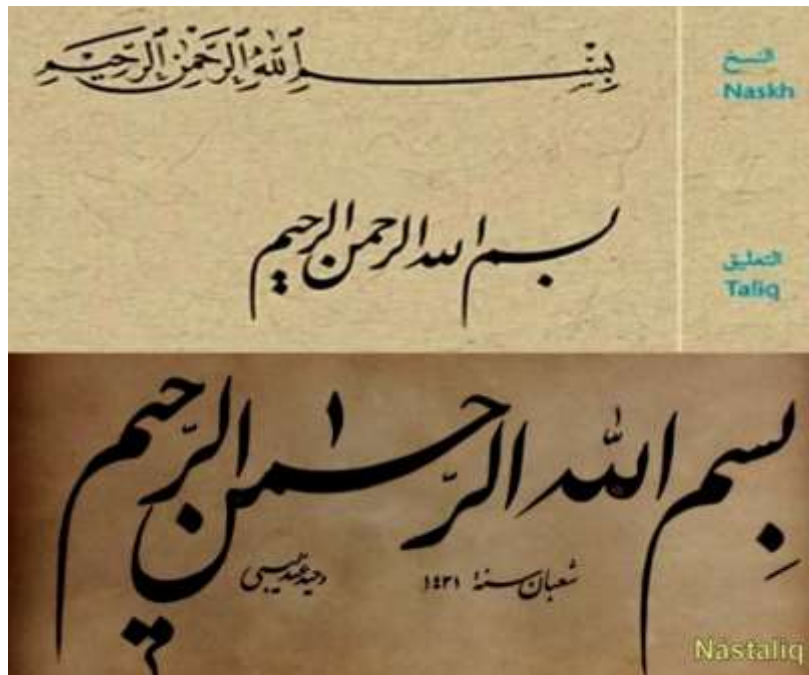 بِسْمِ ٱللَّٰهِ ٱلرَّحْمَٰنِ ٱلرَّحِيمِ
النسخ
Naskh
بسم الله الرحمن الرحيم
التعليق
Taliq
بِسم اللّٰه الرَّحمٰن الرَّحیم
شعبان سنة ١٤٢١
Nastaliq